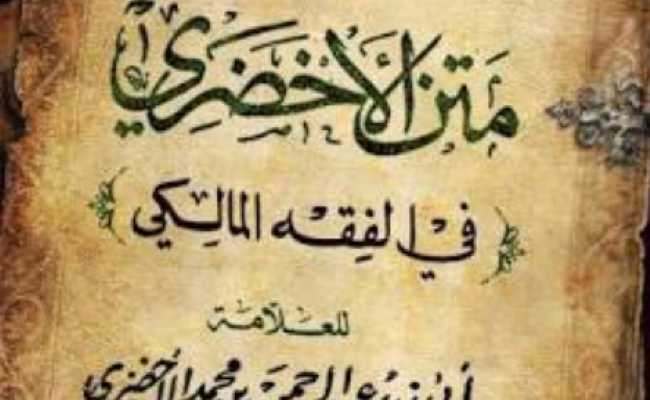 متن الأخضري
في الفقه المالكي
للعلامة
أبي زيد عبد الرحمن بن محمد الأخضري